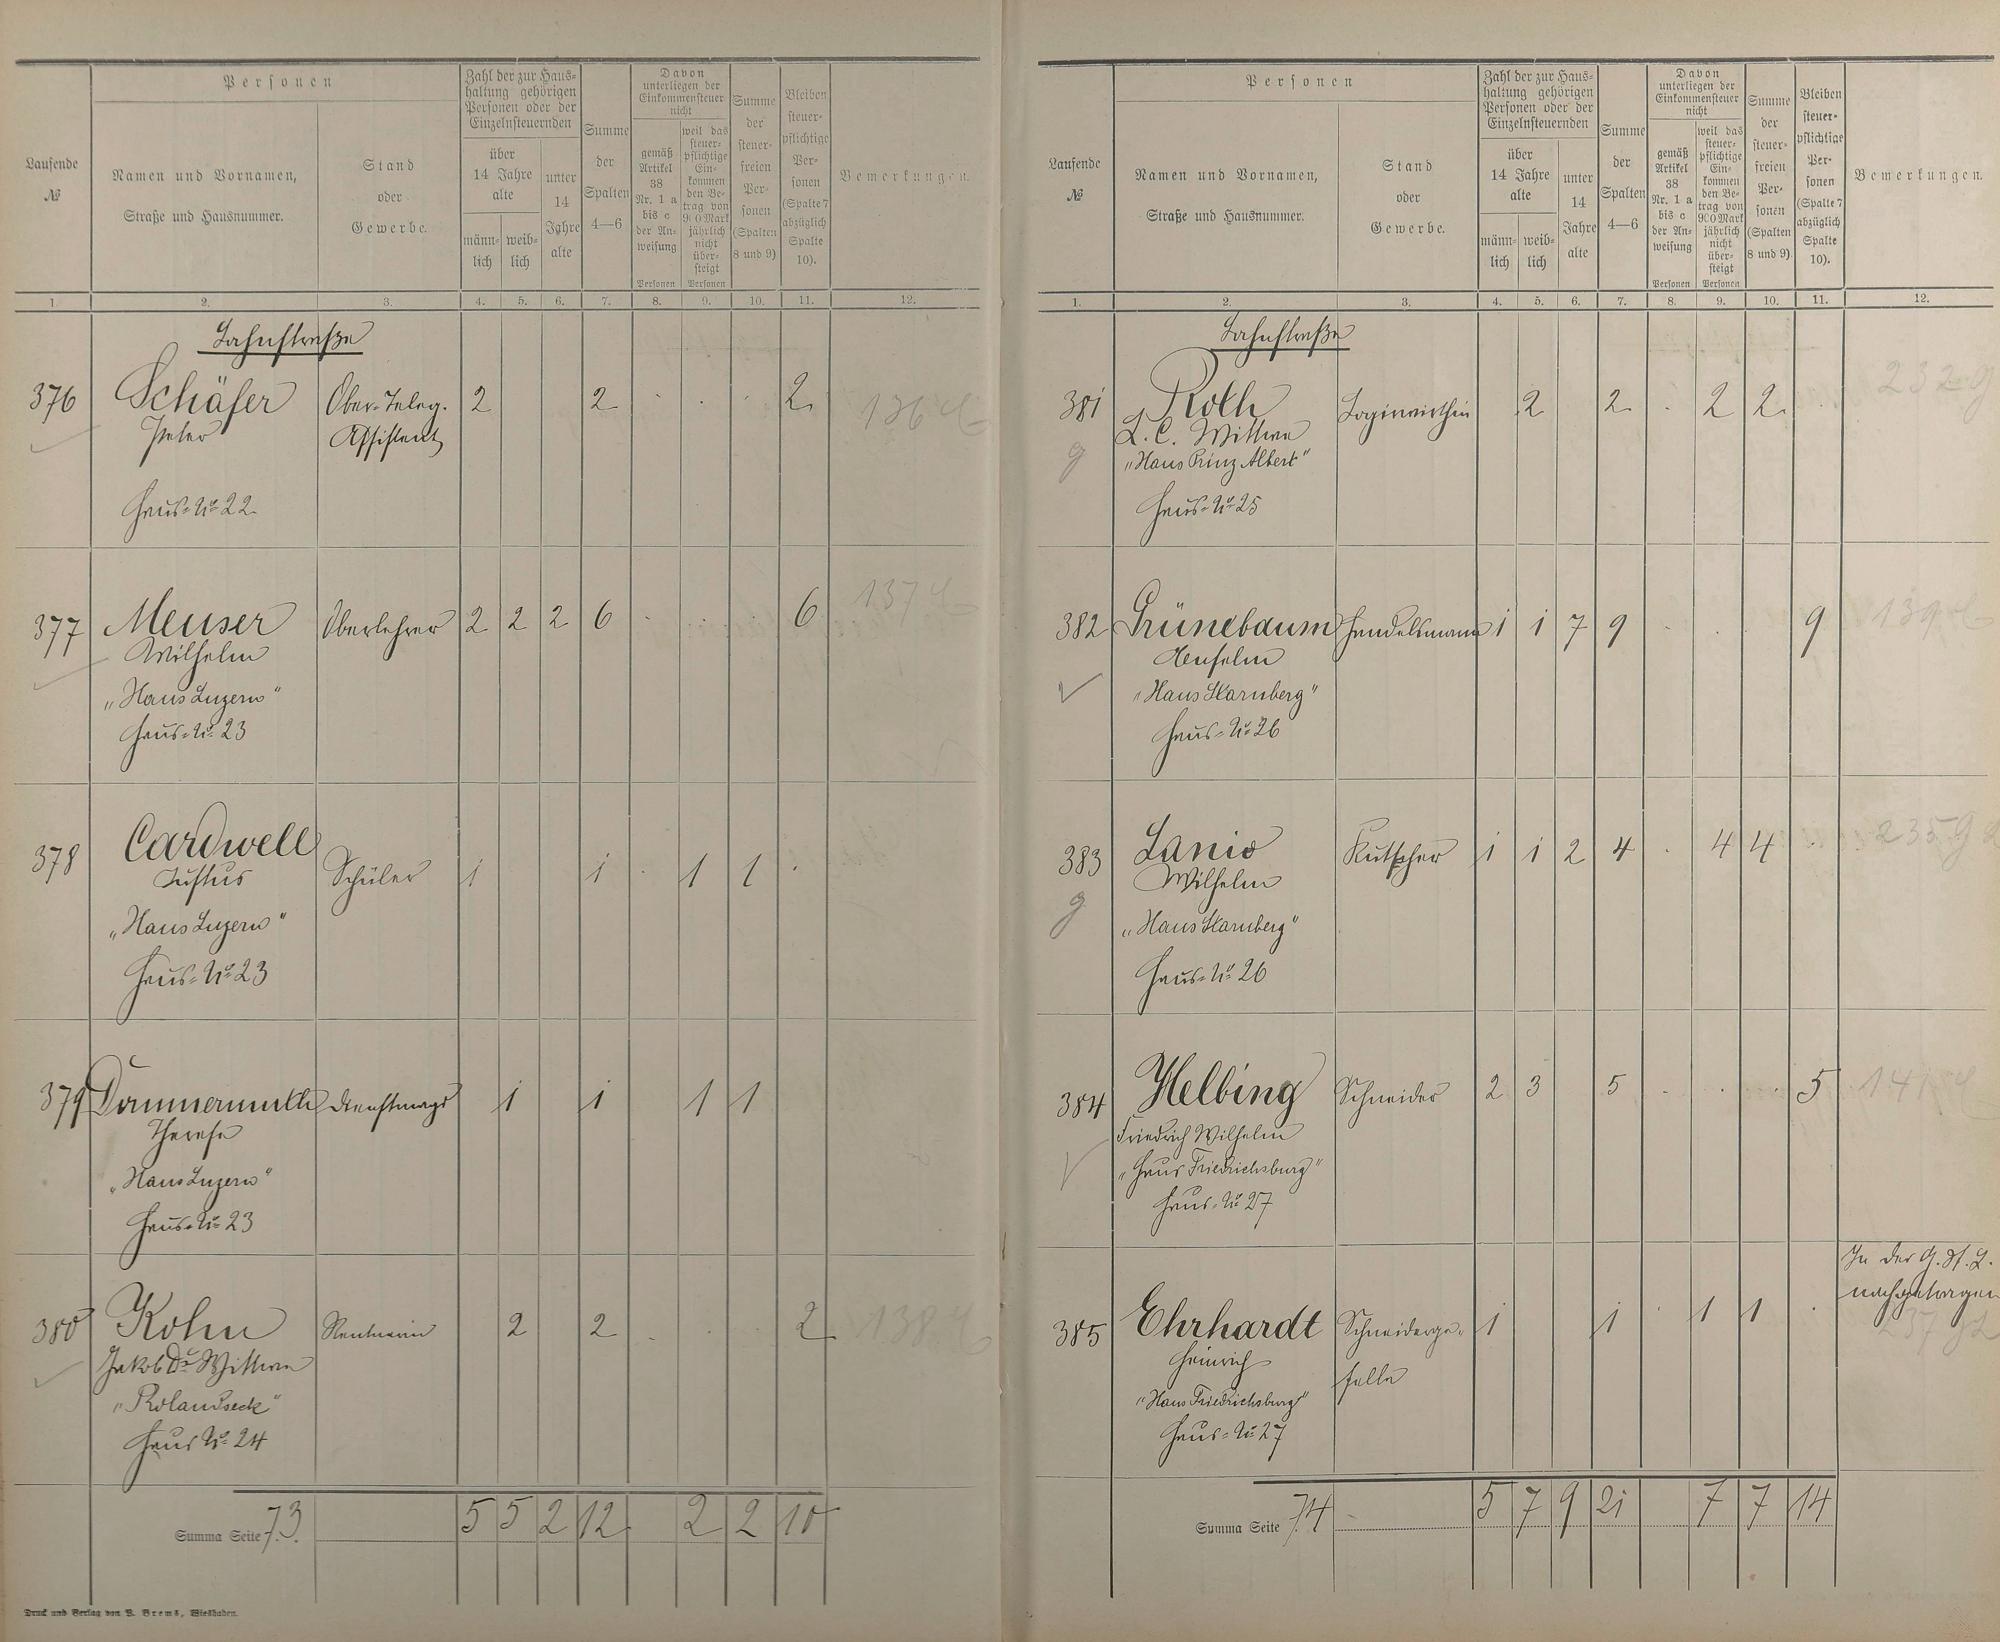 Laufende
№
Personen
Namen und Vornamen,
Straße und Hausnummer.
Stand
oder
Gewerbe.
Zahl der zur Haus-
haltung gehörigen
Personen oder der
Einzelnsteuernden
über
14 Jahre
alte
männ-
lich
weib-
lich
unter
14
Jahre
alte
Summe
der
Spalten
4—6
Davon
unterliegen der
Einkommensteuer
nicht
gemäß
Artikel
38
Nr. 1 a
bis c
der An-
weisung
Personen
weil das
steuer-
pflichtige
Ein-
kommen
den Be-
trag von
900 Mark
jährlich
nicht
über-
steigt
Personen
Summe
der
steuer-
freien
Per-
sonen
(Spalten
8 und 9)
Bleiben
steuer-
pflichtige
Per-
sonen
(Spalte 7
abzüglich
Spalte
10).
Bemerkungen.
1. 2. 3. 4. 5. 6. 7. 8. 9. 10. 11. 12.
Lahnstraße
376 Schäfer Ober-Teleg. 2 2 . . . 2 136
Peter Assistent
Haus-No 22
377 Meuser Oberlehrer 2 2 2 6 . . . 6 137
Wilhelm
"Haus Luzern"
Haus-No 23
378 Cardwell Schüler 1 1 . 1 1 .
Justus
"Haus Luzern"
Haus-No 23
379 Dienstmagd 1 1 1 1
Therese
"Haus Luzern"
Haus-No 23
380 Kohn Rentnerin 2 2 . . . 2 138
Jakob Dr Wittwe
"Rolandseck"
Haus No 24
Summa Seite 73. 5 5 2 12 2 2 10
Druck und Verlag von P. Brems, Wiesbaden.
Laufende
№
Personen
Namen und Vornamen,
Straße und Hausnummer.
Stand
oder
Gewerbe.
Zahl der zur Haus-
haltung gehörigen
Personen oder der
Einzelnsteuernden
über
14 Jahre
alte
männ-
lich
weib-
lich
unter
14
Jahre
alte
Summe
der
Spalten
4—6
Davon
unterliegen der
Einkommensteuer
nicht
gemäß
Artikel
38
Nr. 1 a
bis c
der An-
weisung
Personen
weil das
steuer-
pflichtige
Ein-
kommen
den Be-
trag von
900 Mark
jährlich
nicht
über-
steigt
Personen
Summe
der
steuer-
freien
Per-
sonen
(Spalten
8 und 9)
Bleiben
steuer-
pflichtige
Per-
sonen
(Spalte 7
abzüglich
Spalte
10).
Bemerkungen.
1. 2. 3. 4. 5. 6. 7. 8. 9. 10. 11. 12.
Lahnstraße
381 Roth Logirwirthin 2 2 . 2 2 . 232 g
g L. C. Wittwe
"Haus Prinz Albert"
Haus-No 25
382 Grünebaum Handelsmann 1 1 7 9 . . . 9 139
Anselm
"Haus Starnberg"
Haus-No 26
383 Lanio Kutscher 1 1 2 4 . 4 4 . 235 g
g Wilhelm
"Haus Starnberg"
Haus-No 26
384 Helbing Schneider 2 3 5 . . . 5 141
Friedrich Wilhelm
"Haus Friedrichsburg"
Haus-No 27
In der G. St. L.
nachgetragen
385 Ehrhardt Schneiderge- 1 1 . 1 1 . 237 g
Heinrich selle
"Haus Friedrichsburg"
Haus-No 27
Summa Seite 74 5 7 9 21 7 7 14